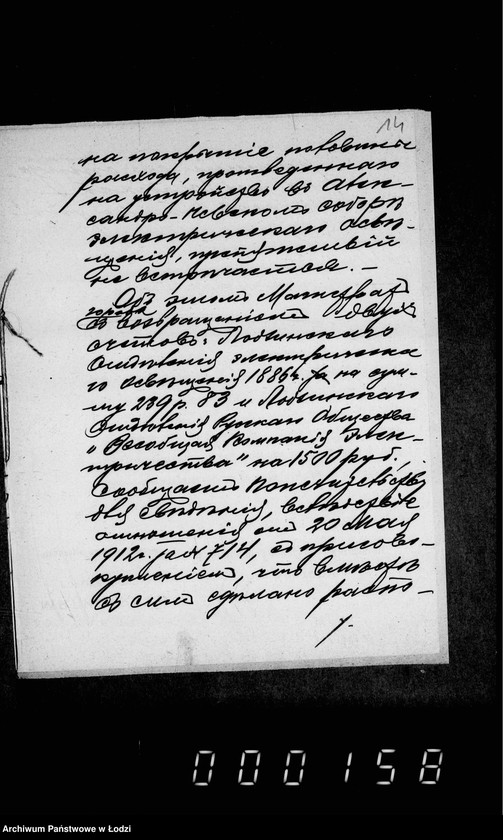 14
на покрытіе половины
расхода, произведеннаго
на устройство въ Алек-
сандро-Невскомъ соборѣ
электрическаго освѣ-
щенія, препятствій
не встрѣчается. —
Объ этомъ Магистратъ
города
съ возвращеніемъ двухъ
счетовъ: Лодзинскаго
Отдѣленія электрическа
го освѣщенія 1886 г. на сум-
му 239 р. 83 и Лодзинскаго
Отдѣленія Русскаго Общества
"Всеобщая Компанія Элек-
тричества" на 1500 руб.,
сообщаетъ
для свѣдѣнія, вслѣдствіе
отношенія отъ 20 мая
1912 г. за № 714, съ присово-
купленіемъ, что вмѣстѣ
съ симъ сдѣлано распо-
/.
000158
Archiwum Państwowe w Łodzi